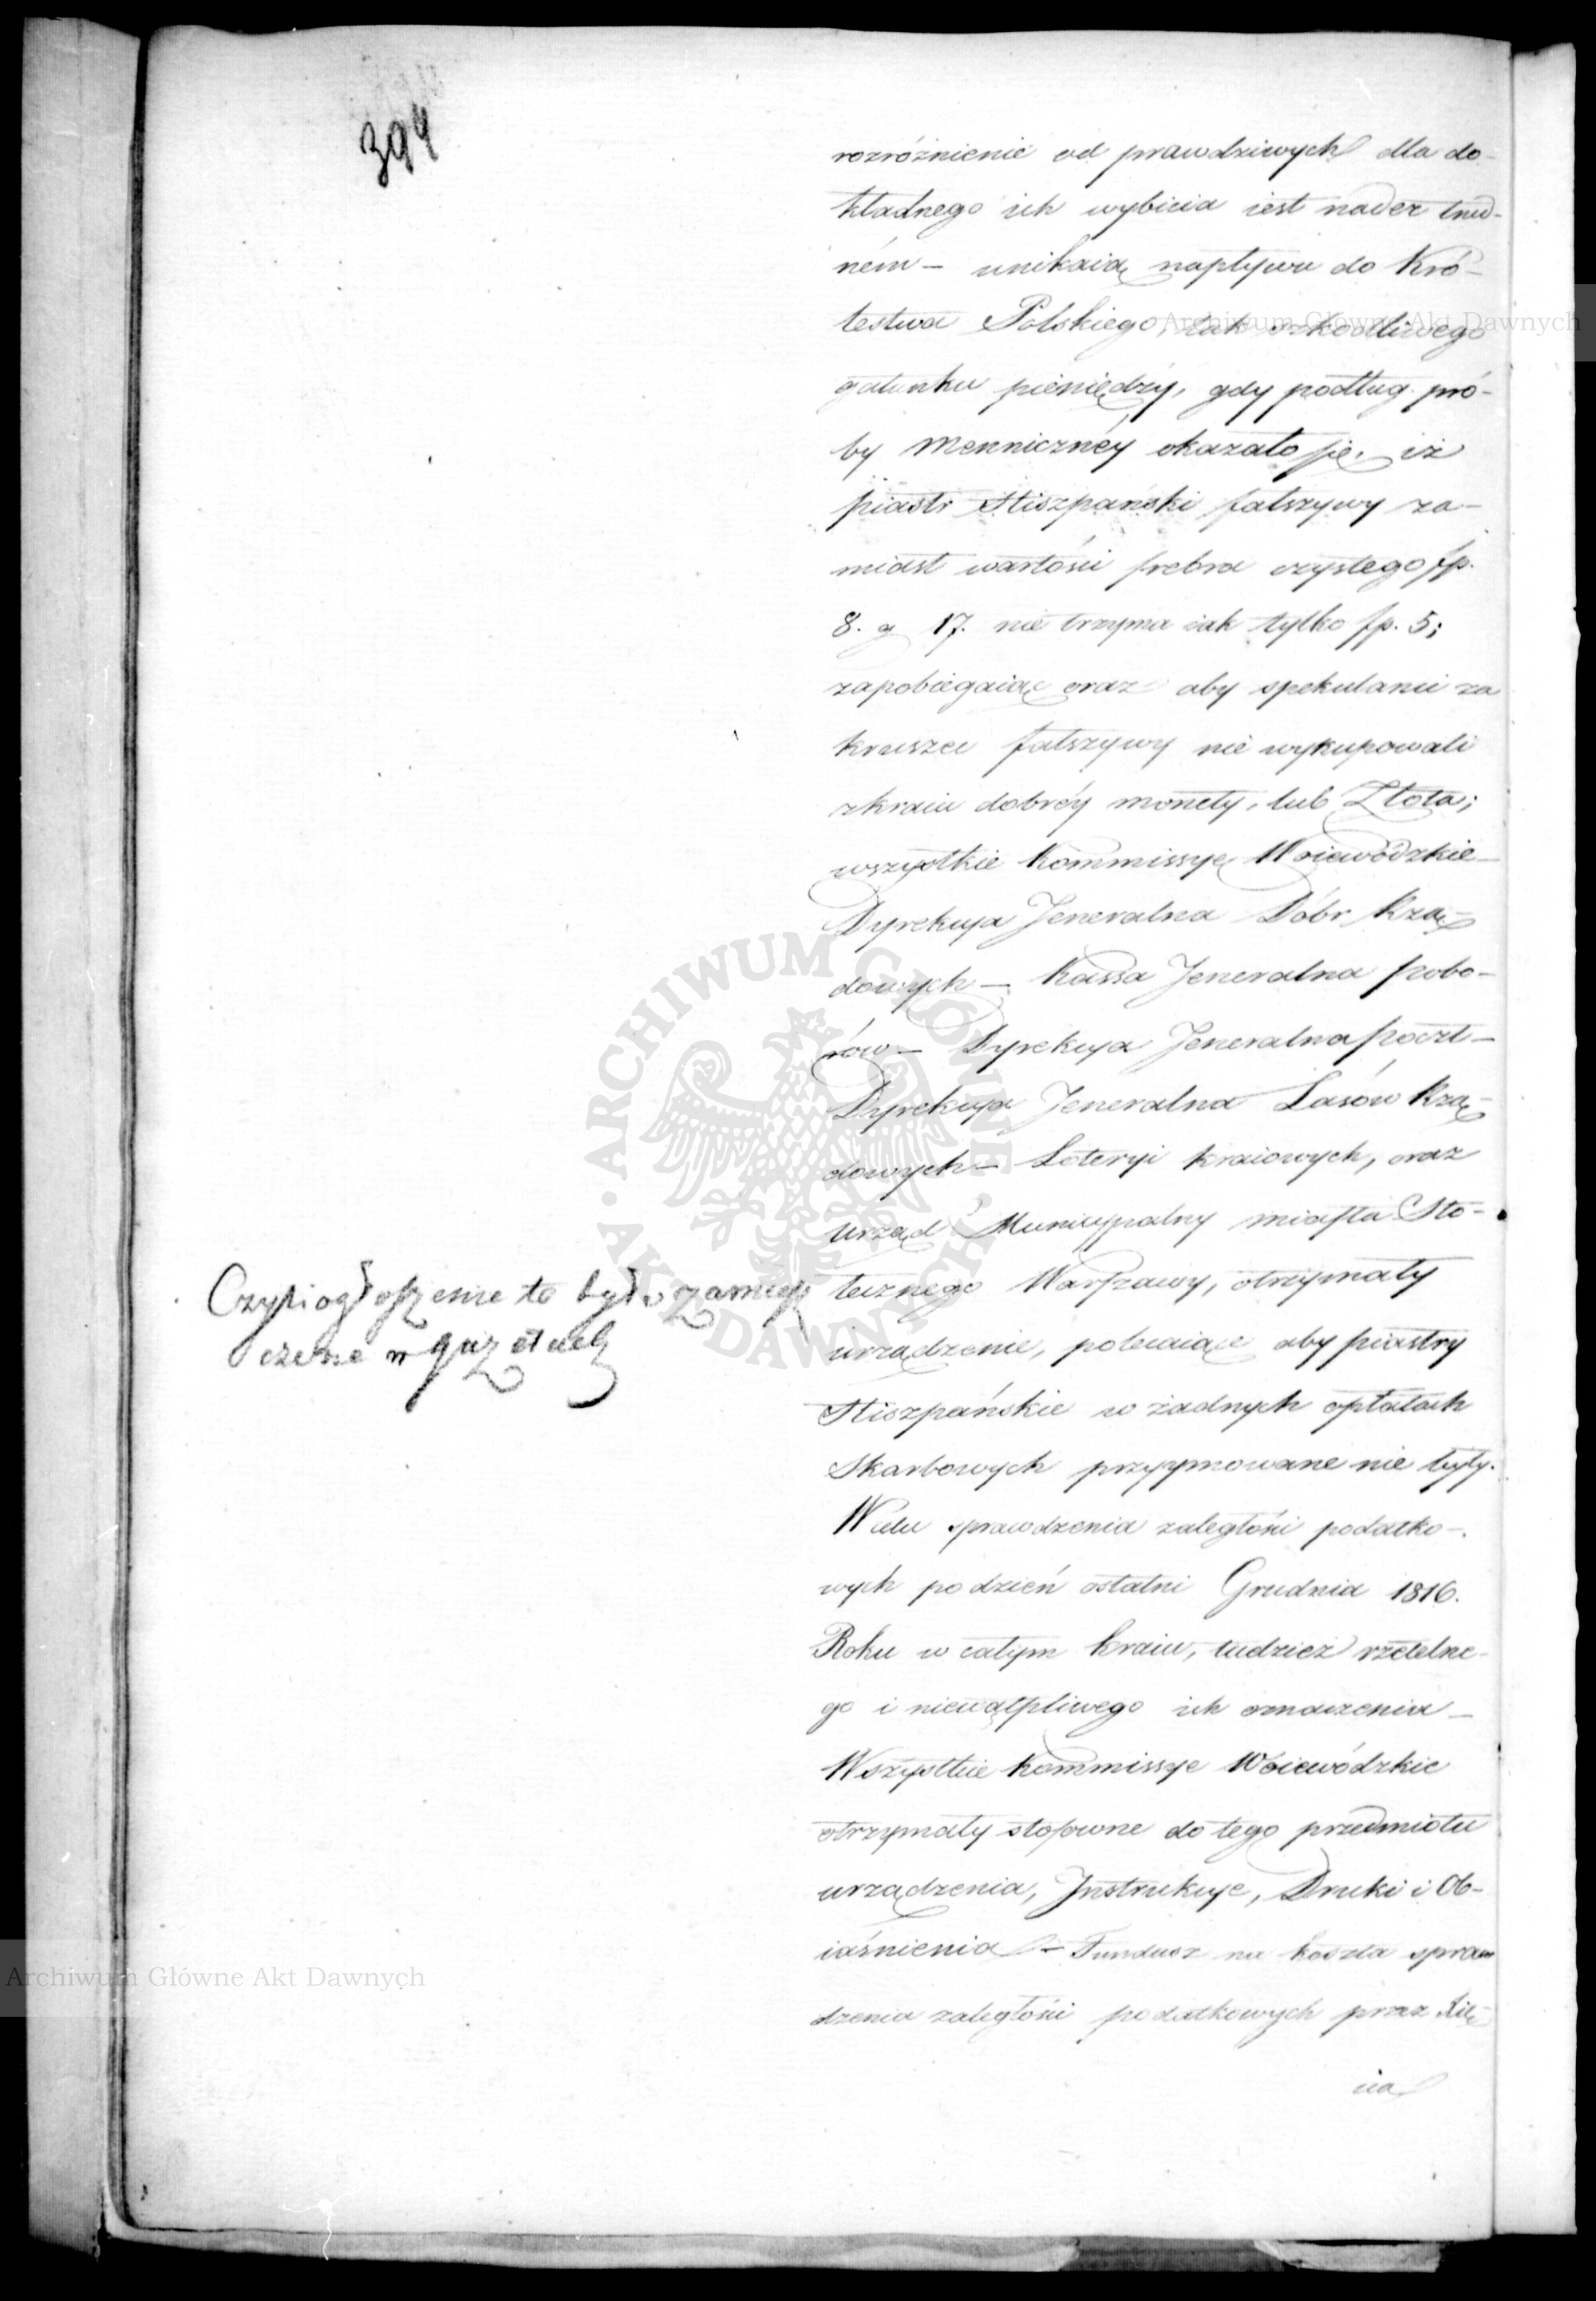 394
rozróżnienie od prawdziwych dla do-
kładnego ich wybicia iest nader trud-
ném – unikaiąc napływu do Kró-
lestwa Polskiego, tak szkodliwego
gatunku pieniędzy, gdy podług pró-
by Menniczney okazało się, iż
piastr Hiszpański fałszywy za-
miast wartości srebra czystego fp.
8. g 17. nie trzyma iak tylko fp. 5;
zapobiegaiąc oraz aby spekulanci za
kruszec fałszywy nie wykupowali
zkraiu dobréy monety, lub Złota;
wszystkie Kommissye Woiewódzkie –
Dyrekcya Jeneralna Dóbr Rzą-
dowych – Kassa Jeneralna Pobo-
rów – Dyrekcya Jeneralna Poczt –
Dyrekcya Jeneralna Lasów Rzą-
dowych – Loteryi kraiowych, oraz
Urząd Municypalny miasta Sto-
łecznego Warszawy, otrzymały
urządzenie, polecaiące aby piastry
Hiszpańskie w żadnych opłatach
Skarbowych przyymowane nie były.
W celu sprawdzenia zaległości podatko-
wych po dzień ostatni Grudnia 1816.
Roku w całym kraiu, tudzież rzetelne-
go i niewątpliwego ich oznaczenia –
Wszystkie Kommissye Woiewódzkie
otrzymały stosowne do tego przedmiotu
urządzenia, Jnstrukcye, Druki i Ob-
iaśnienia – Fundusz na koszta spraw
dzenia zaległości podatkowych przez
Czyli ogłoszenie to było zamiesz
czone w gazetach
Archiwum Główne Akt Dawnych
Archiwum Główne Akt Dawnych
ARCHIWUM GŁÓWNE AKT DAWNYCH